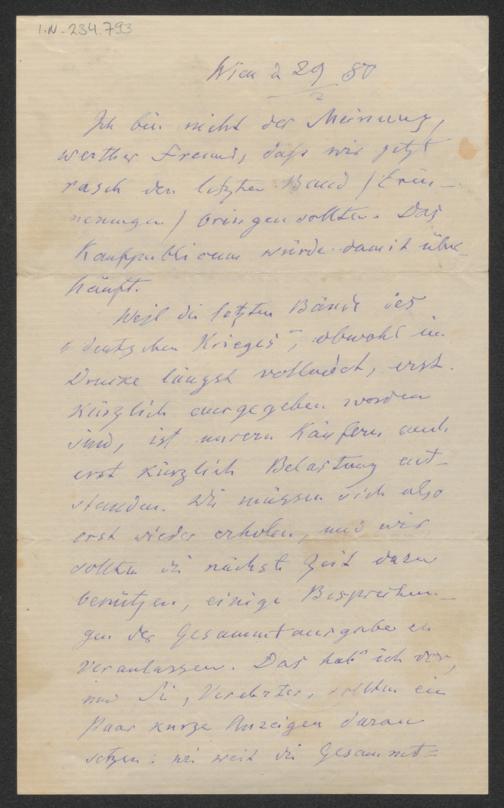 I.N.-234.793
Wien 29/2 80
Ich bin nicht der Meinung,
werther Freund, daß wir jetzt
rasch den letzten Band /Erin-
nerungen/ bringen sollten. Das
Kaufpublicum würde damit über-
häuft.
Weil die letzten Bände des
"deutschen Krieges", obwohl im
Drucke längst vollendet, erst
kürzlich ausgegeben worden
sind, ist unsern Käufern auch
erst kürzlich Belastung ent-
standen. Die müssen sich also
erst wieder erholen, und wir
sollten die nächste Zeit dazu
benützen, einige Besprechun-
gen der Gesammtausgabe zu
veranlassen. Das hab' ich vor,
und Sie, Verehrter, sollten ein
Paar kurze Anzeigen daran
setzen: wie weit die Gesammt=